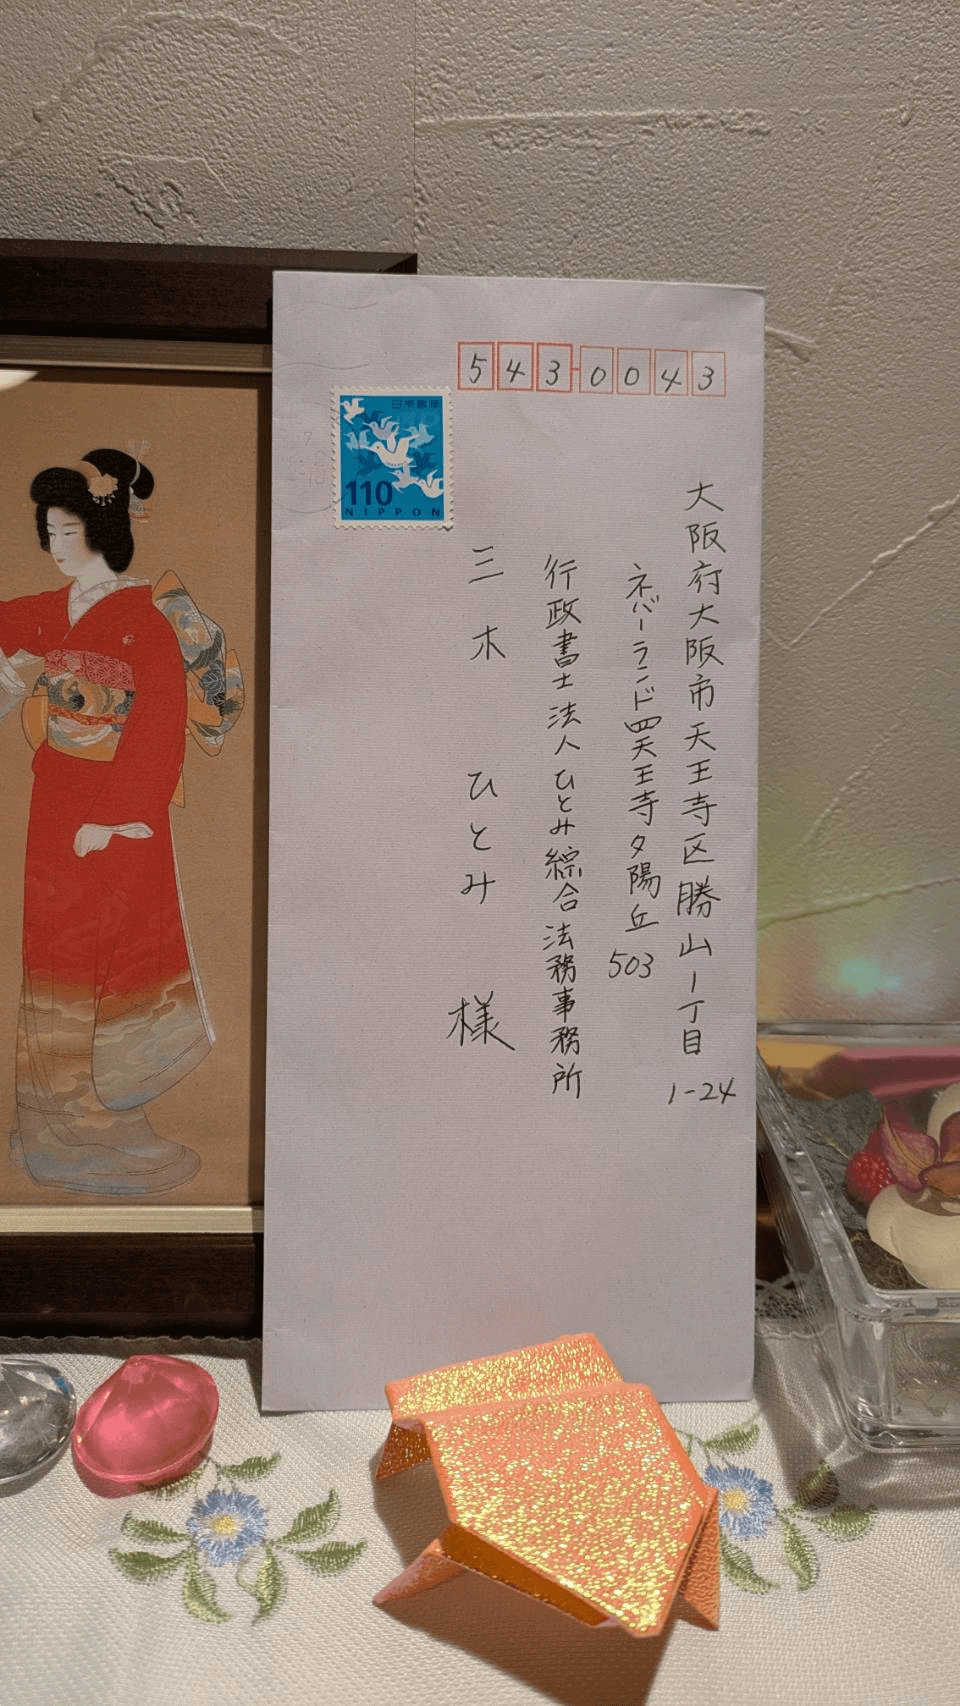 543-0043
日本郵便
110
NIPPON
大阪府大阪市天王寺区勝山1丁目1-24
ネバーランド四天王寺夕陽丘503
行政書士法人ひとみ綜合法務事務所
三木ひとみ様